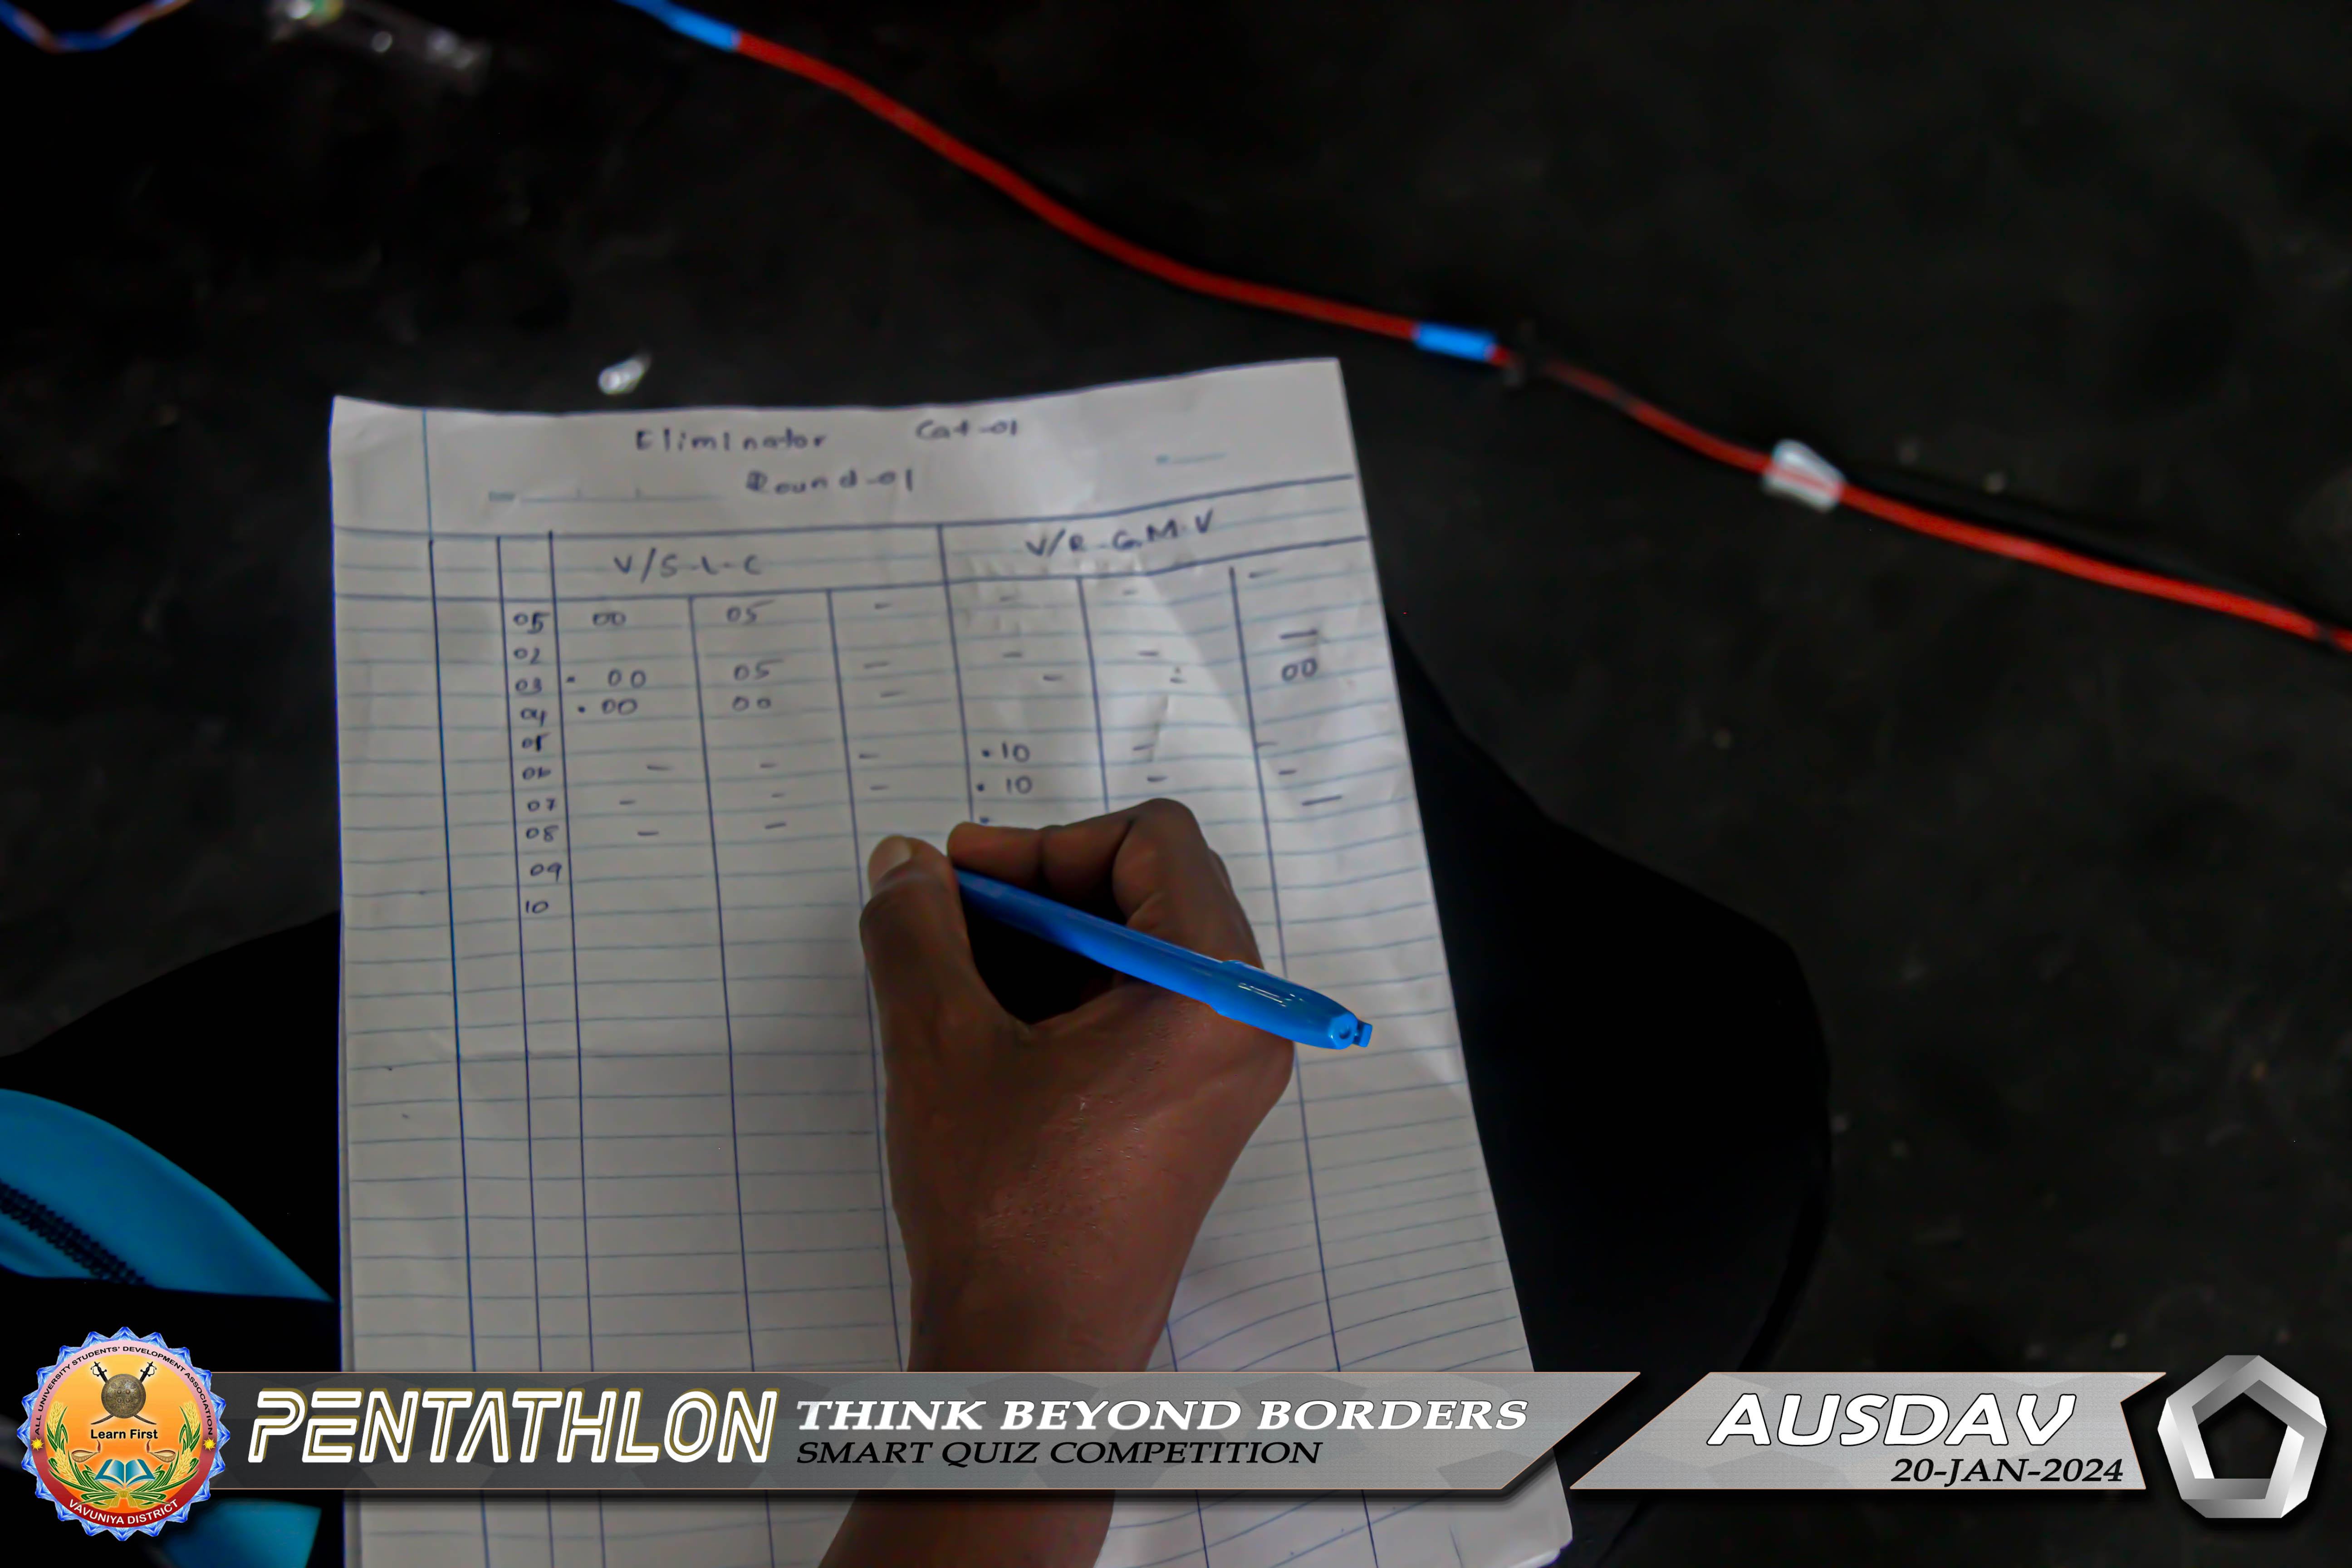 Eliminator Cat-01
Round-01
V/S-L-C V/R-G.M.V
05 00 05 - - - -
02 - - - —
03 . 00 05 - - 00
04 . 00 00
05 - . 10 - -
06 - - - . 10 - -
07 - - —
08 - -
09
10
ALL UNIVERSITY STUDENTS' DEVELOPMENT ASSOCIATION
Learn First
VAVUNIYA DISTRICT
PENTATHLON THINK BEYOND BORDERS
SMART QUIZ COMPETITION
AUSDAV
20-JAN-2024